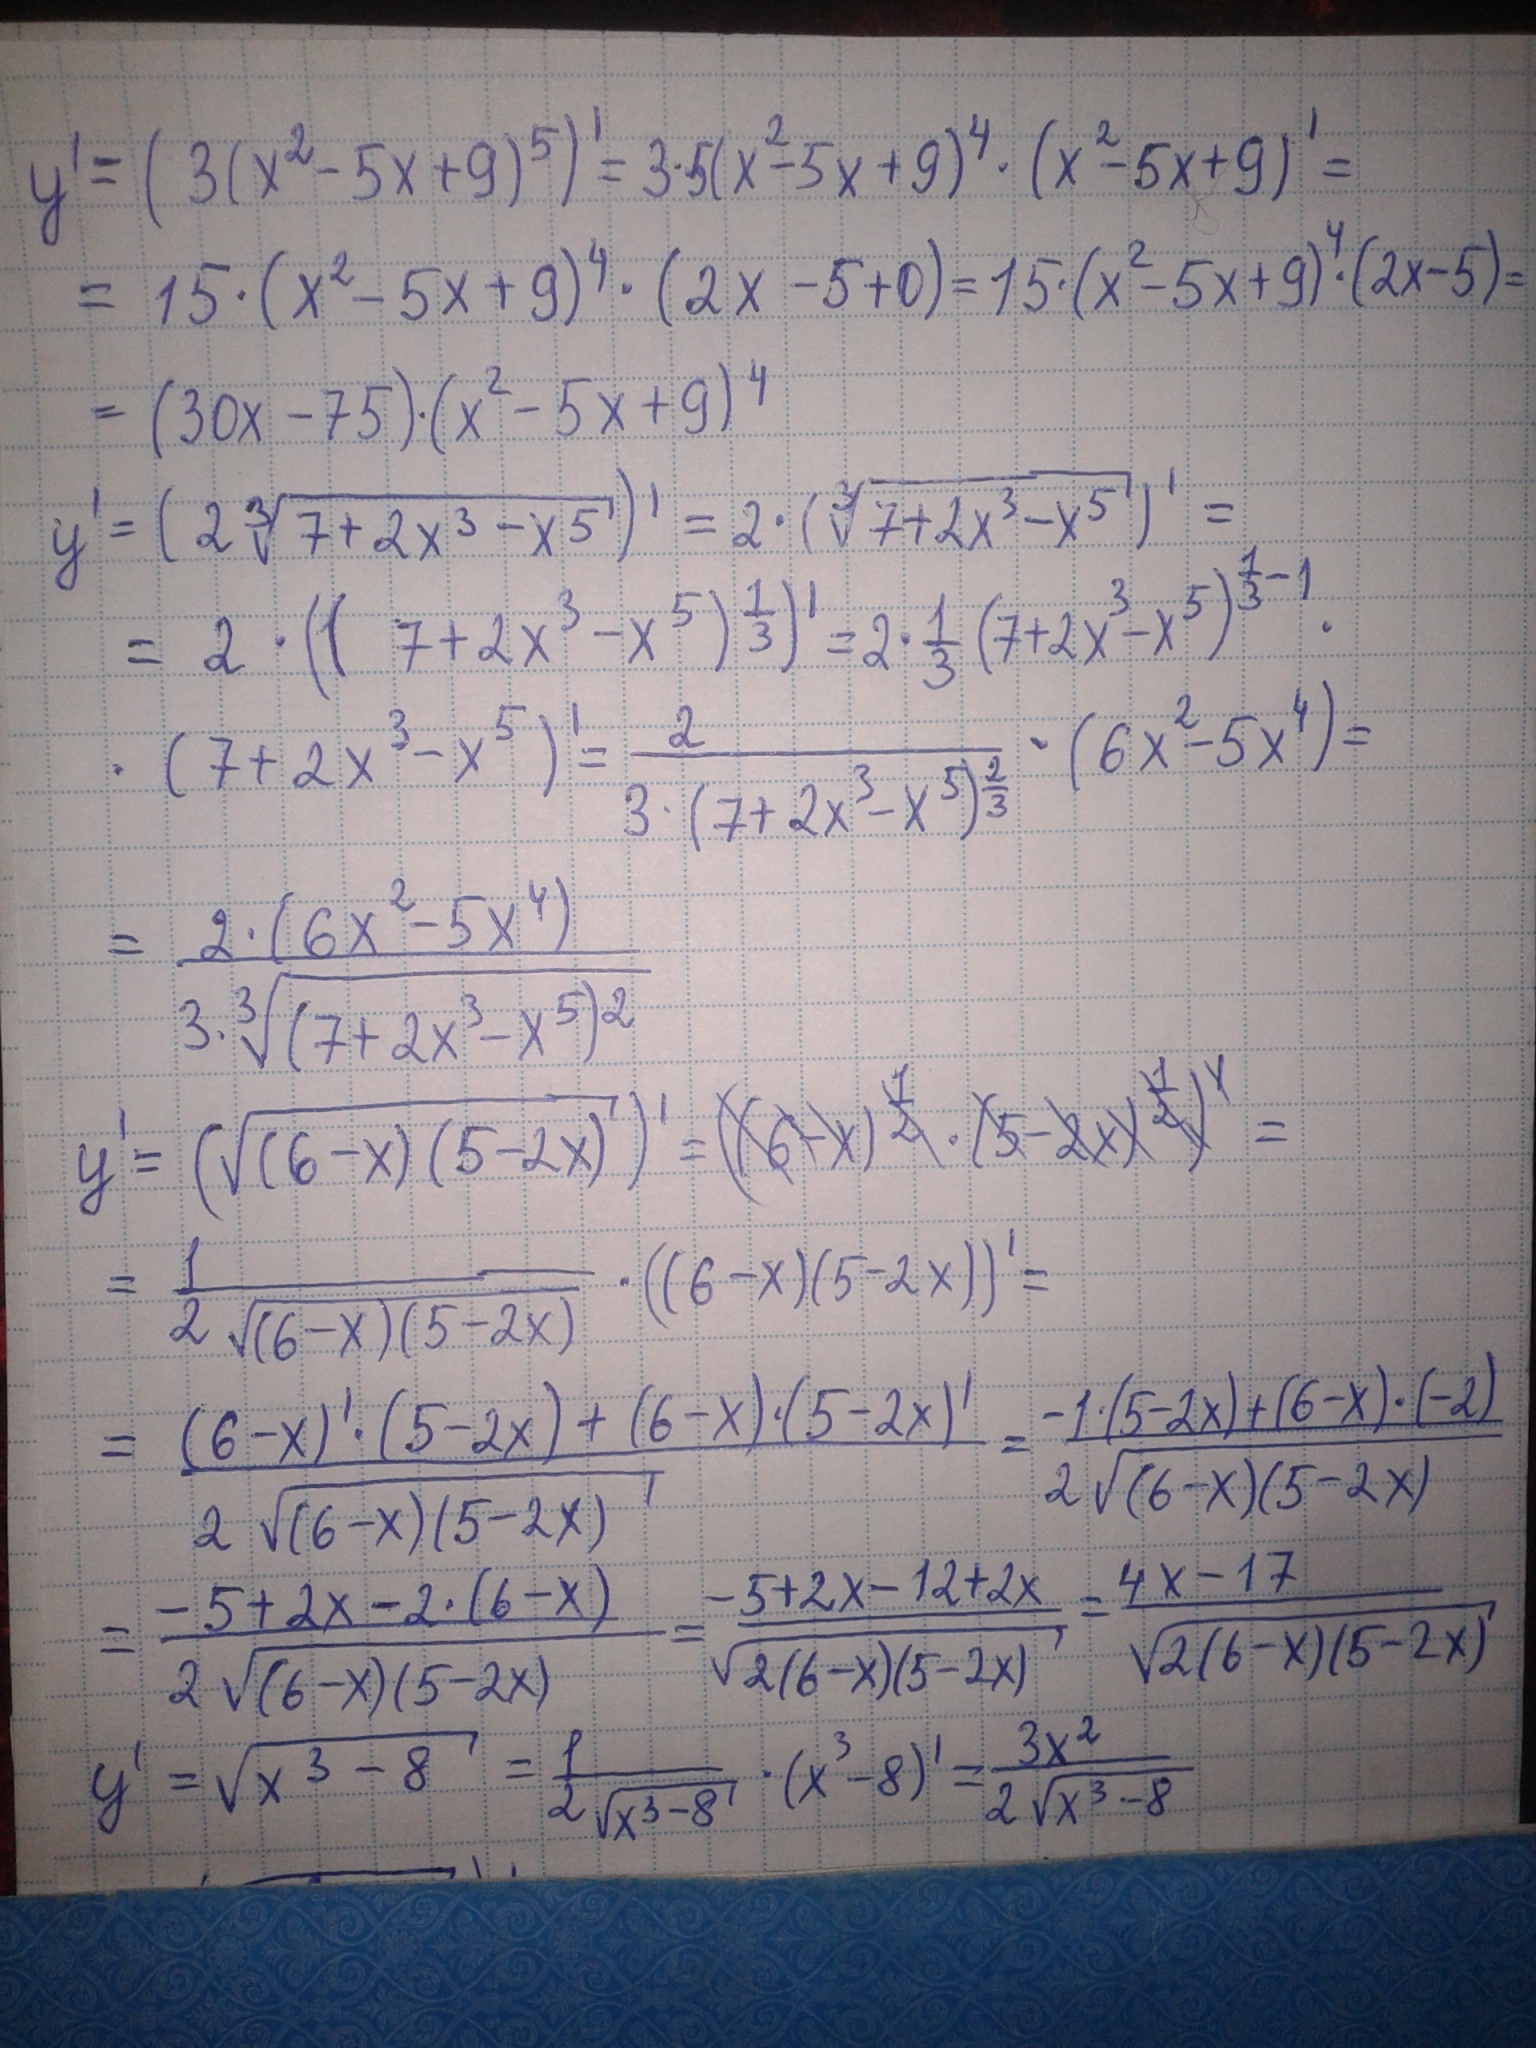 y' = (3(x²-5x+9)⁵)' = 3·5(x²-5x+9)⁴·(x²-5x+9)' =
= 15·(x²-5x+9)⁴·(2x-5+0) = 15·(x²-5x+9)⁴·(2x-5) =
= (30x-75)·(x²-5x+9)⁴
y' = (2∛(7+2x³-x⁵))' = 2·(∛(7+2x³-x⁵))' =
= 2·((7+2x³-x⁵)^(1/3))' = 2·1/3(7+2x³-x⁵)^(1/3-1)·
·(7+2x³-x⁵)' = 2/(3·(7+2x³-x⁵)^(2/3))·(6x²-5x⁴) =
= 2·(6x²-5x⁴)/(3·∛((7+2x³-x⁵)²))
y' = (√((6-x)(5-2x)))' = ((6-x)^(1/2)·(5-2x)^(1/2))' =
= 1/(2√((6-x)(5-2x)))·((6-x)(5-2x))' =
= ((6-x)'·(5-2x)+(6-x)·(5-2x)')/(2√((6-x)(5-2x))) = (-1·(5-2x)+(6-x)·(-2))/(2√((6-x)(5-2x)))
= (-5+2x-2·(6-x))/(2√((6-x)(5-2x))) = (-5+2x-12+2x)/(√(2(6-x)(5-2x))) = (4x-17)/(√(2(6-x)(5-2x)))
y' = √(x³-8) = 1/(2√(x³-8))·(x³-8)' = 3x²/(2√(x³-8))